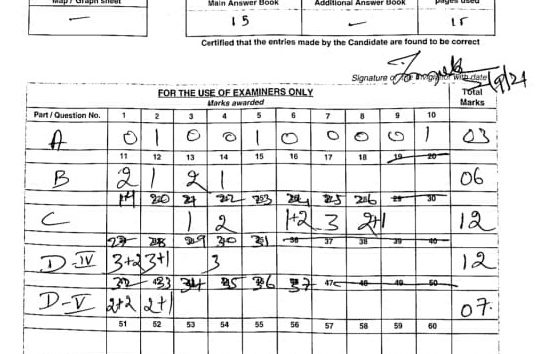 Map / Graph sheet
Main Answer Book
Additional Answer Book
pages used
—
15
—
15
Certified that the entries made by the Candidate are found to be correct
Signature of the Invigilator with date
FOR THE USE OF EXAMINERS ONLY
Marks awarded
Total Marks
Part / Question No. 1 2 3 4 5 6 7 8 9 10
A 0 1 0 0 1 0 0 0 0 1 03
11 12 13 14 15 16 17 18 19 20
B 2 1 2 1 06
19 20 21 22 23 24 25 26 29 30
C 1 2 1+2 3 2+1 12
27 28 29 30 31 36 37 38 39 40
D-IV 3+2 3+1 3 12
32 33 34 35 36 37 47 48 49 50
D-V 2+2 2+1 07
51 52 53 54 55 56 57 58 59 60